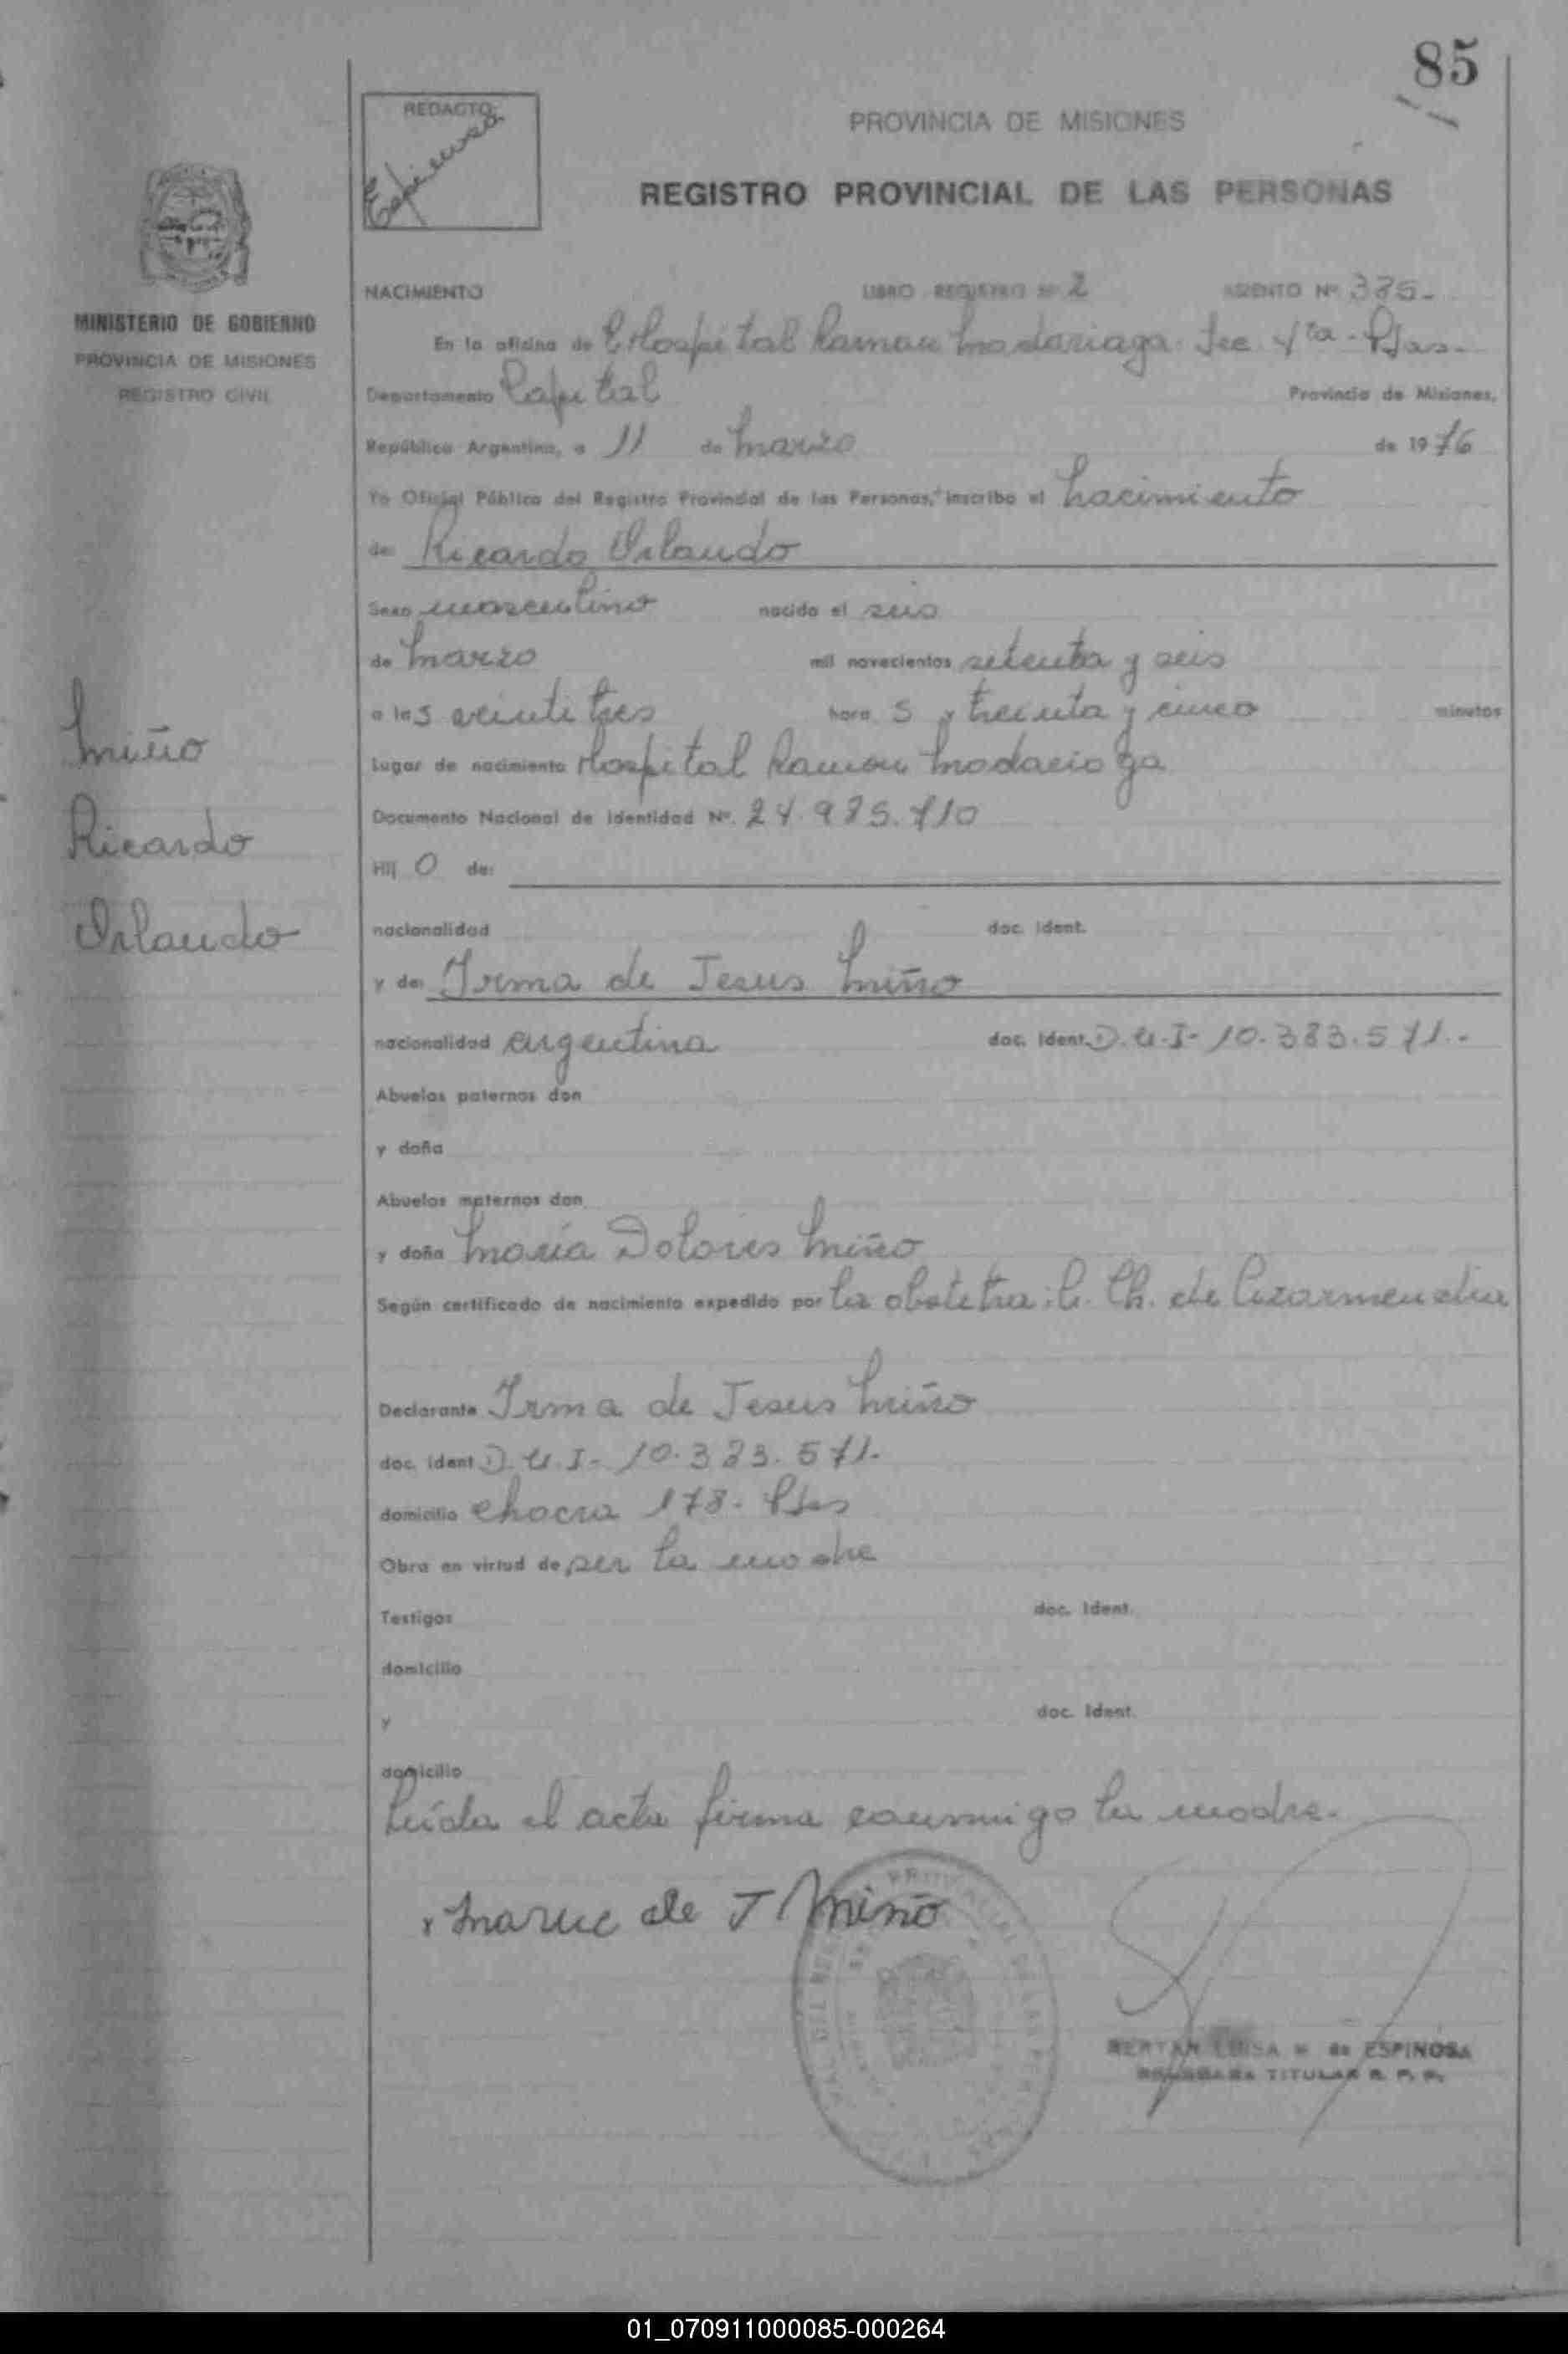 85
REDACTO
Espinosa
PROVINCIA DE MISIONES
REGISTRO PROVINCIAL DE LAS PERSONAS
MINISTERIO DE GOBIERNO
PROVINCIA DE MISIONES
REGISTRO CIVIL
NACIMIENTO LIBRO REGISTRO Nº 2 ASIENTO Nº 385-
En la oficina de Hospital Ramon Madariaga Sec 4ta - Pdas-
Departamento Capital Provincia de Misiones,
República Argentina, a 11 de Marzo de 1976
Yo Oficial Público del Registro Provincial de las Personas, inscribo el Nacimiento
de: Ricardo Orlando
Sexo masculino nacido el seis
de Marzo mil novecientos setenta y seis
a las veinti tres hora s y treinta y cinco minutos
Lugar de nacimiento Hospital Ramon Madariaga
Documento Nacional de Identidad Nº. 24.985.710
Hij o de:
nacionalidad doc. Ident.
y de: Irma de Jesus Miño
nacionalidad argentina doc. Ident. D.U.I- 10.383.571.-
Abuelos paternos don
y doña
Abuelos maternos don
y doña María Dolores Miño
Según certificado de nacimiento expedido por La obstetra: C. Ch. de
Declarante Irma de Jesus Miño
doc. Ident D.U.I- 10.383.571-
domicilio chacra 178- Pdas
Obra en virtud de ser la madre
Testigos doc. Ident.
domicilio
y doc. Ident.
domicilio
Leída el acta firma conmigo la madre.
de J Miño
LUISA M de ESPINOSA
TITULAR R. P. P.
Miño
Ricardo
Orlando
01_070911000085-000264